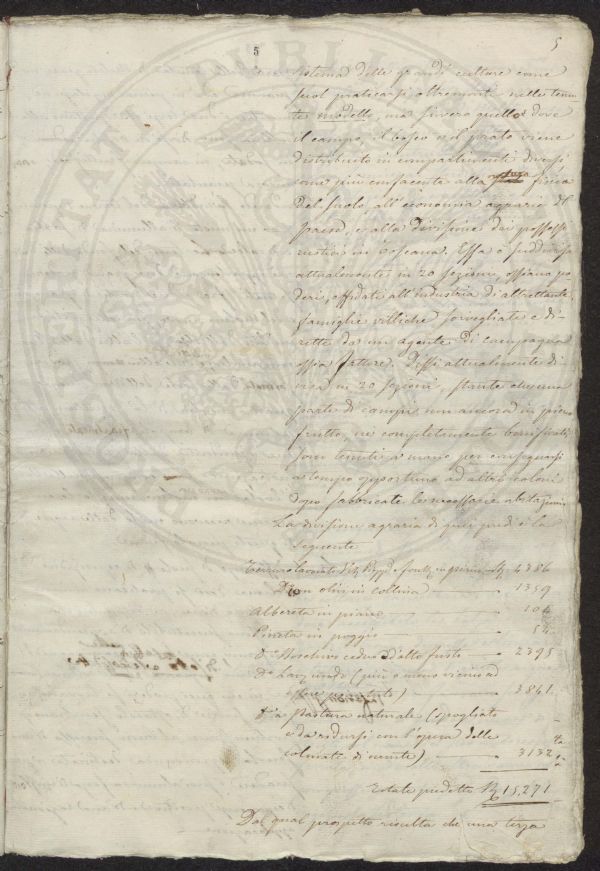 5 5
sistema delle grandi culture come
suol praticarsi oltremonte nelle tenu-
te modello, ma sivvero quello dove
il campo, il bosco ed il prato viene
distribuito in compartimenti diversi
come più confacente alla fisica
del suolo all'economia agraria del
paese, e alla divisione dei possessi
rustici in Toscana. Essa è suddivisa
attualmente in 20 sezioni, ossiano po
deri, affidati all'industria di altrettante
famiglie villiche sorvegliate e di-
rette da un agente di campagna
ossia fattore. Dissi attualmente di
visa in 20 sezioni, stante che una
parte di campi non ancora in pieno
frutto, nè completamente bonificati
son tenuti a mano per consegnarsi
a tempo opportuno ad altri coloni
dopo fabbricate le necessarie abitazioni
La divisione agraria di quei predi è la
seguente
Terreno lavorato 4386
D° con olivi in collina 1359
Albereta in piano 104
Pineta in poggio
D° Boschivo ceduo e d'alto fusto 2395
D° (più o meno vicino ad
) 3861
D° a pastura naturale (spogliato
e da ridursi con l'opera delle
colmate di monte) 3132
Totale predette 15,271
Dal qual prospetto risulta che una terza